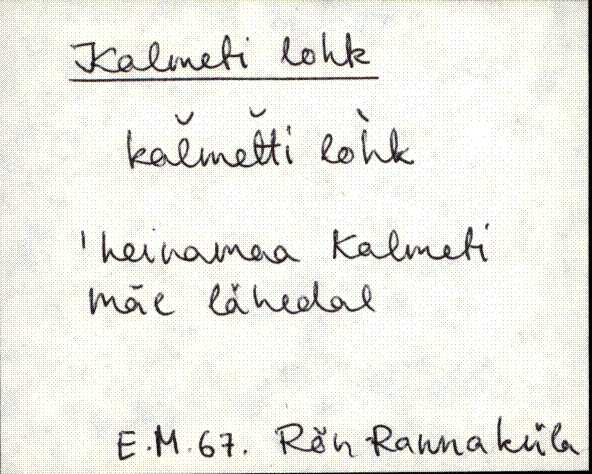 Kalmeti lohk
kal̆met̆ti loh̀k
'heinamaa Kalmeti
mäe lähedal
E.M.67. Rõn Rannaküla